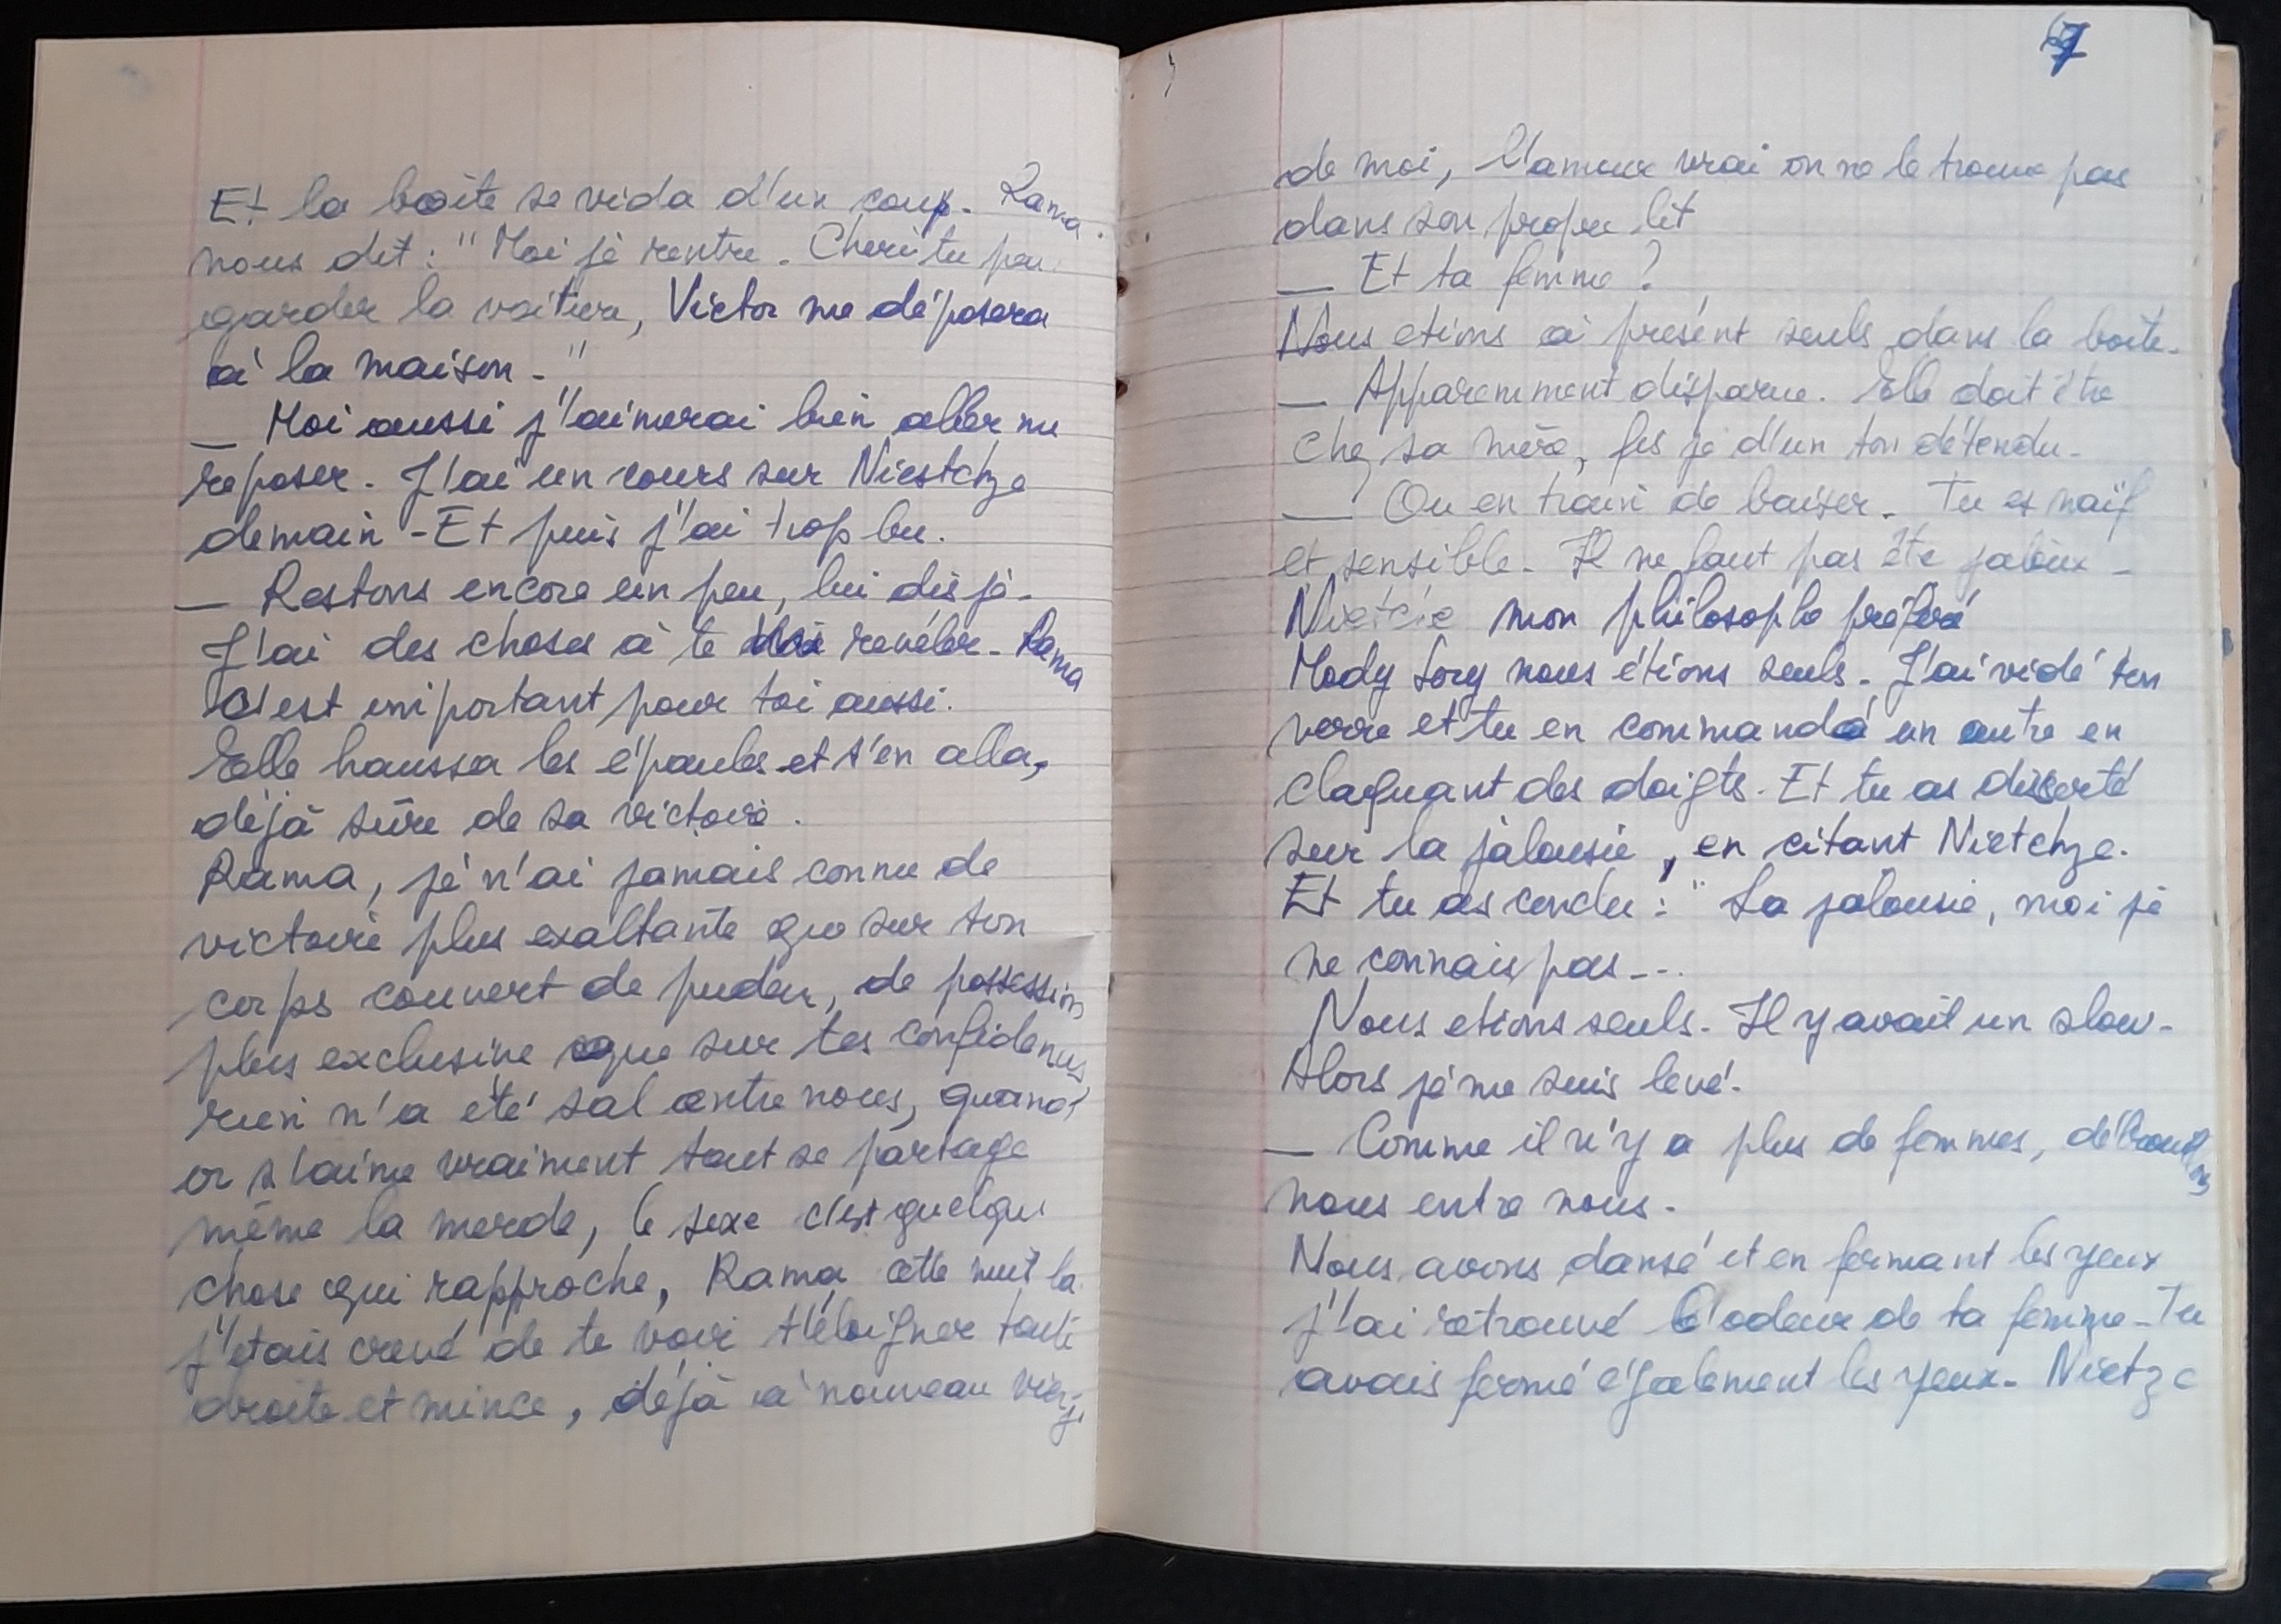 Et la boite se vida d'un coup. Rama
nous dit : "Moi je rentre. Cheri tu peu
garder la voiture, Victor me déposera
à la maison."
_ Moi aussi j'aimerai bien aller me
reposer. J'ai un cours sur Niestchze
demain - Et puis j'ai trop bu.
_ Restons encore un peu, lui dis je.
J'ai des choses à te revéler. Rama
C'est important pour toi aussi.
Elle haussa les épaules et s'en alla,
déjà sûre de sa victoire.
Rama, je n'ai jamais connu de
victoire plus exaltante que sur ton
corps couvert de pudeur, de possession
plus exclusive que sur tes confidences
rien n'a été sal entre nous, quand
on s'aime vraiment tout se partage
même la merde, le sexe c'est quelque
chose qui rapproche, Rama, cette nuit la
j'etais crevé de te voir t'éloigner toute
droite et mince, déjà à nouveau vierge
7
de moi, l'amour vrai on ne le trouve pas
dans son propre lit
_ Et ta femme ?
Nous etions à présent seuls dans la boite.
_ Apparemment disparue. Elle doit être
chez sa mère, fis je d'un ton détendu.
_ Ou en train de baiser. Tu es naïf
et sensible. Il ne faut pas être jaloux.
mon philosophe préféré
Mody Sory nous étions seuls. J'ai vidé ton
verre et tu en commanda un autre en
claquant des doigts. Et tu as disserté
sur la jalousie, en citant Nietchze.
Et tu as conclu : "La jalousie, moi je
ne connais pas...
Nous etions seuls. Il y avait un slow.
Alors je me suis levé.
_ Comme il n'y a plus de femmes, débrouillons
nous entre nous.
Nous avons dansé et en fermant les yeux
j'ai retrouvé l'odeur de ta femme. Tu
avais fermé également les yeux. Nietze